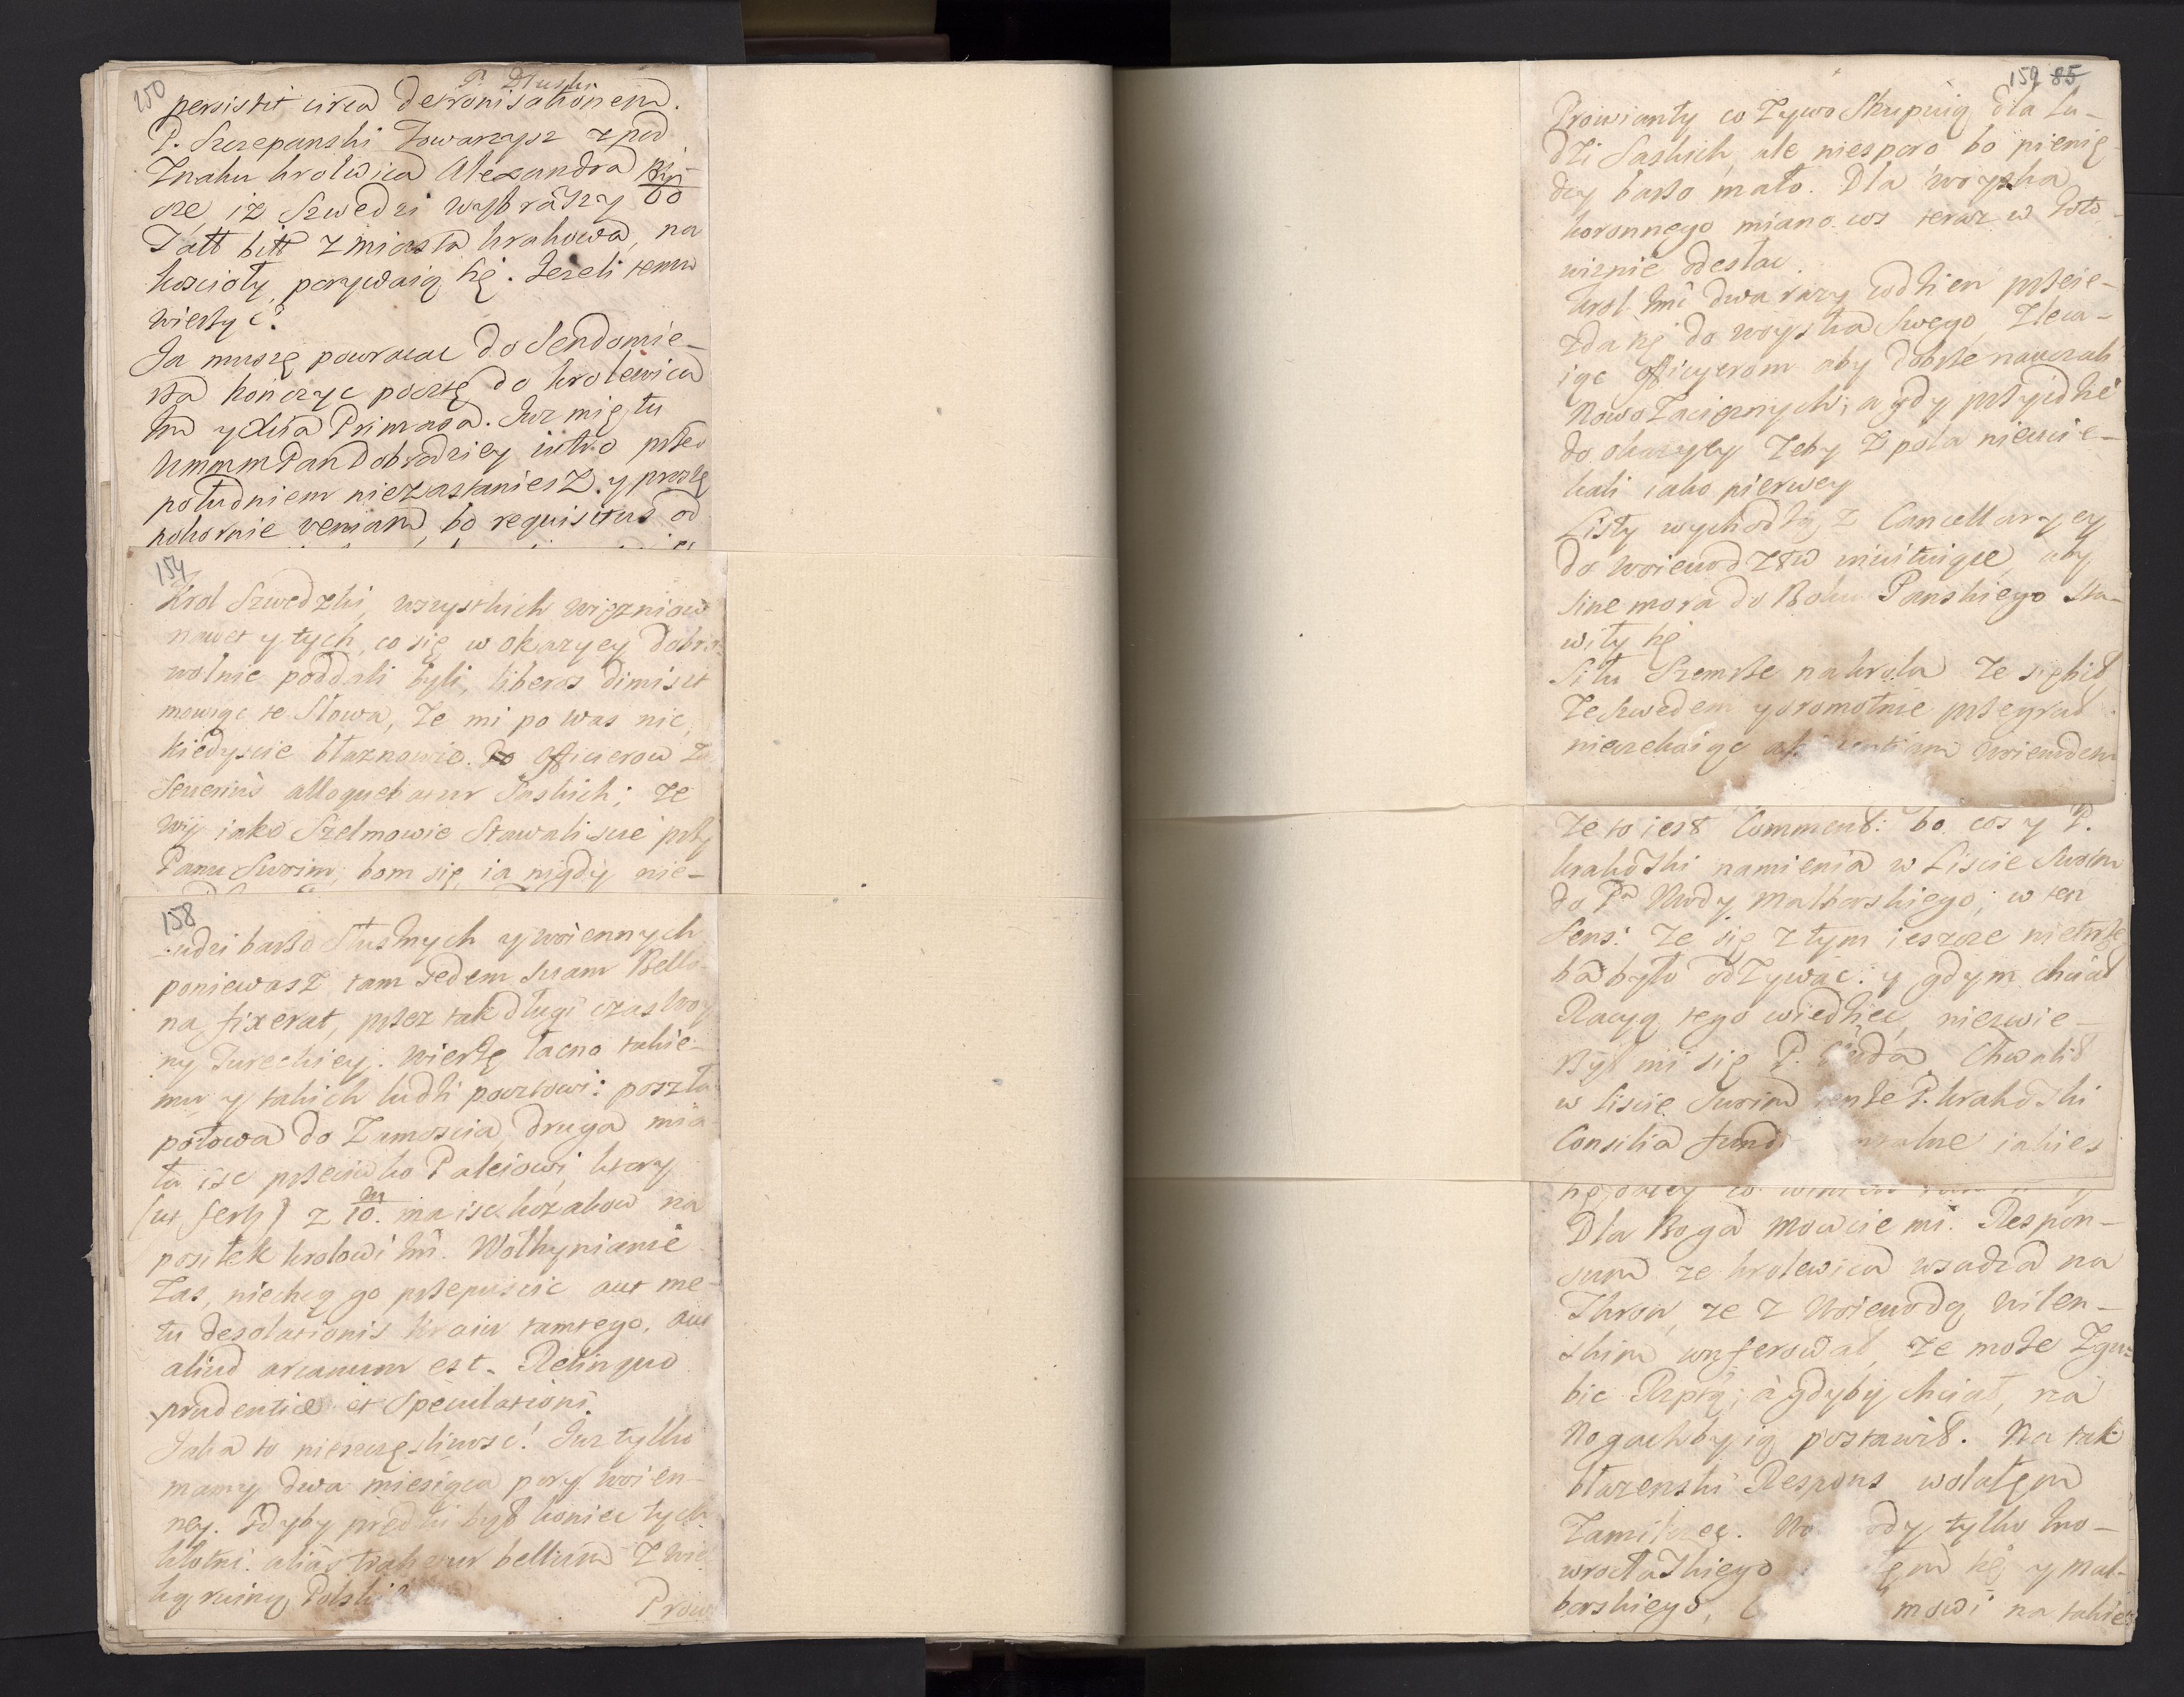 150
P. Dłuski
persistit circa detronisationem.
P. Szczepanski Towarzysz z pod
Znaku krolwica Alexandra
sze, iż Szwedzi wybrászy 60
Tatt bitt z miasta krakowa, na
koscioły porywaią się. Jezeli temu
wieżyć?
Ja muszę powracac do Sendomie-
kończyc pocztę do krolewica
Jm y Xcia Primasa. Juz mię tu
WmmmPan Dobrodziey iutro przed
południem niezastaniesz. y proszę
pokornie veniam, bo requisitus od
154
Krol Szwedzki, wszystkich więzniow
nawet y tych, co się w okazyey dobro-
wolnie poddali byli, liberos dimisit
mowiąc te słowa, że mi po was nic,
kiedyscie błaznowie. Do Officierow
Seuerius alloquebatur Saskich; że
wÿ iako Szelmowie stawaliscie przy
Panu Swoim, bom się ia nigdy nie-
158
Ludzi barzo słusznych y woiennych
poniewasz tam sedem suam Bello-
na fixerat, przez tak długi czas Woy
ny Tureckiey. Wierzę łacno takie-
mu y takich ludzi pocztowi: poszła
połowa do Zamoscia, druga mia-
ła isc przeciwko Paleiowi, ktory
(ut fertz) z 10. m ma isc kozakow na
posiłek krolowi Jmi. Wołhynianie
Zas, niechcą go przepuscic aut me-
tu desolationis kraiu tamtego, aut
aliud arcanum est. Relinquo
prudentiæ et speculationi.
Jaka to nieszczęsliwosc! Juz tylko
mamy dwa miesiąca pory woien-
ney. Gdyby prędki był koniec tych
kłotni. alias trahetur bellum z wiel
ką ruiną Polski
Prow
159 85
Prowianty co żywo skupuią dla Lu-
dzi Saskich, ale niesporo bo pienię-
dzy barzo mało. Dla woyska
koronnego miano cos teraz w Goto-
wiznie odesłac.
krol Jmć dwa razy codzien przeie-
zda się do woyska Swego, zleca-
iąc Officyerom aby dobrze nauczali
Nowo Zaciężnych; a gdy przyidzie
do okazyey żeby z pola niеucie-
kali iako pierwey.
Listy wychodzą z Cancellaryey
do woiewodztw inuituiące aby
sine mora do Boku Panskiego sta-
wiły się
Siłu szemrze na krola że się bił
ze Szwedem y sromotnie przegrał
nieczekaiąc woiewodzw
Że to iest Comment: bo cos y P.
krakoski namienia w Liscie Swoim
do Pa Wwdy Malborskiego; w ten
Sens: że się z tym ieszcze nietrze
ba było odzywac: y gdym chciał
Racyą tego wiedziec, niezwie-
Był mi się P. Chwalił
w liscie Swoim P. krakoski
Consilia fund iakies
Dla Boga mowcie mi. Respon-
sum ze krolewica wsadza na
Thron, ze z Woiewodą wilen-
skim conferował, że może zgu-
bic Rzptę; à gdyby chciał, na
Nogach by ią postawił. Na tak
błazenski Respons wolałem
zamilczec. ody tylko Ino-
wrocłaskiego łem się y mal-
borskiego, mowi na takie